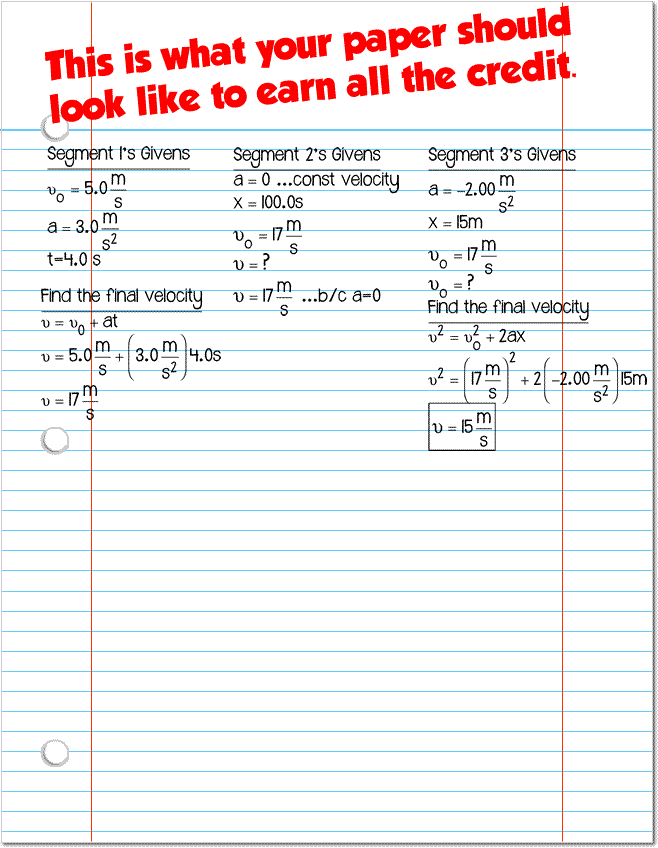 This is what your paper should
look like to earn all the credit.
Segment 1's Givens
υ₀ = 5.0 m/s
a = 3.0 m/s²
t=4.0 s
Find the final velocity
υ = υ₀ + at
υ = 5.0 m/s + (3.0 m/s²) 4.0s
υ = 17 m/s
Segment 2's Givens
a = 0 ...const velocity
x = 100.0s
υ₀ = 17 m/s
υ = ?
υ = 17 m/s ...b/c a=0
Segment 3's Givens
a = –2.00 m/s²
x = 15m
υ₀ = 17 m/s
υ₀ = ?
Find the final velocity
υ² = υ₀² + 2ax
υ² = (17 m/s)² + 2(–2.00 m/s²)15m
υ = 15 m/s